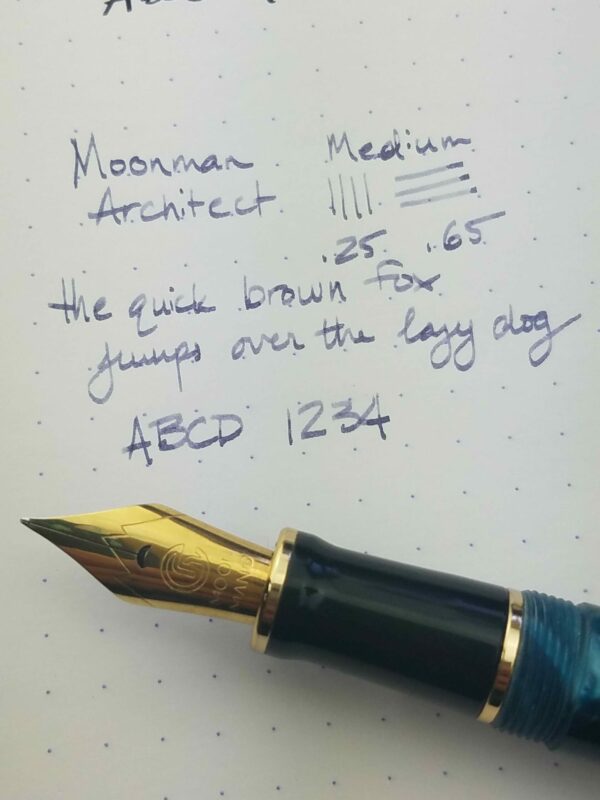 Moonman Medium
Architect
.25 .65
the quick brown fox
jumps over the lazy dog
ABCD 1234
MOON
MAN